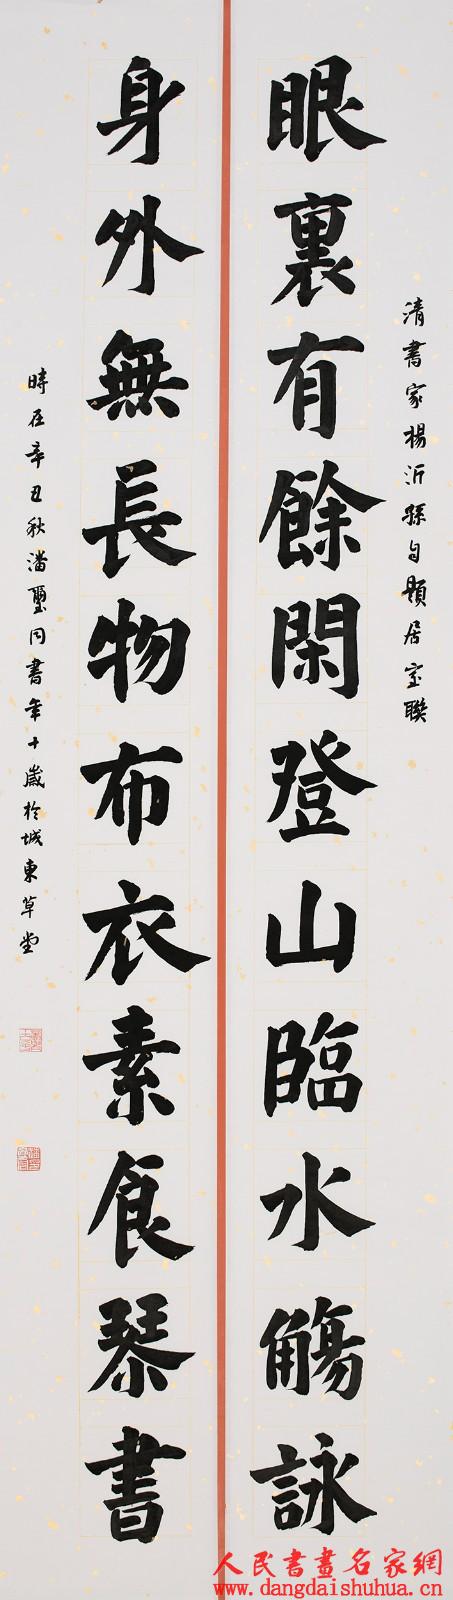 清書家楊沂孫自題居室聯
眼裏有餘閑登山臨水觴詠
身外無長物布衣素食琴書
時在辛丑秋潘璽同書年十歲於城東草堂
人民書畫名家網
www.dangdaishuhua.cn